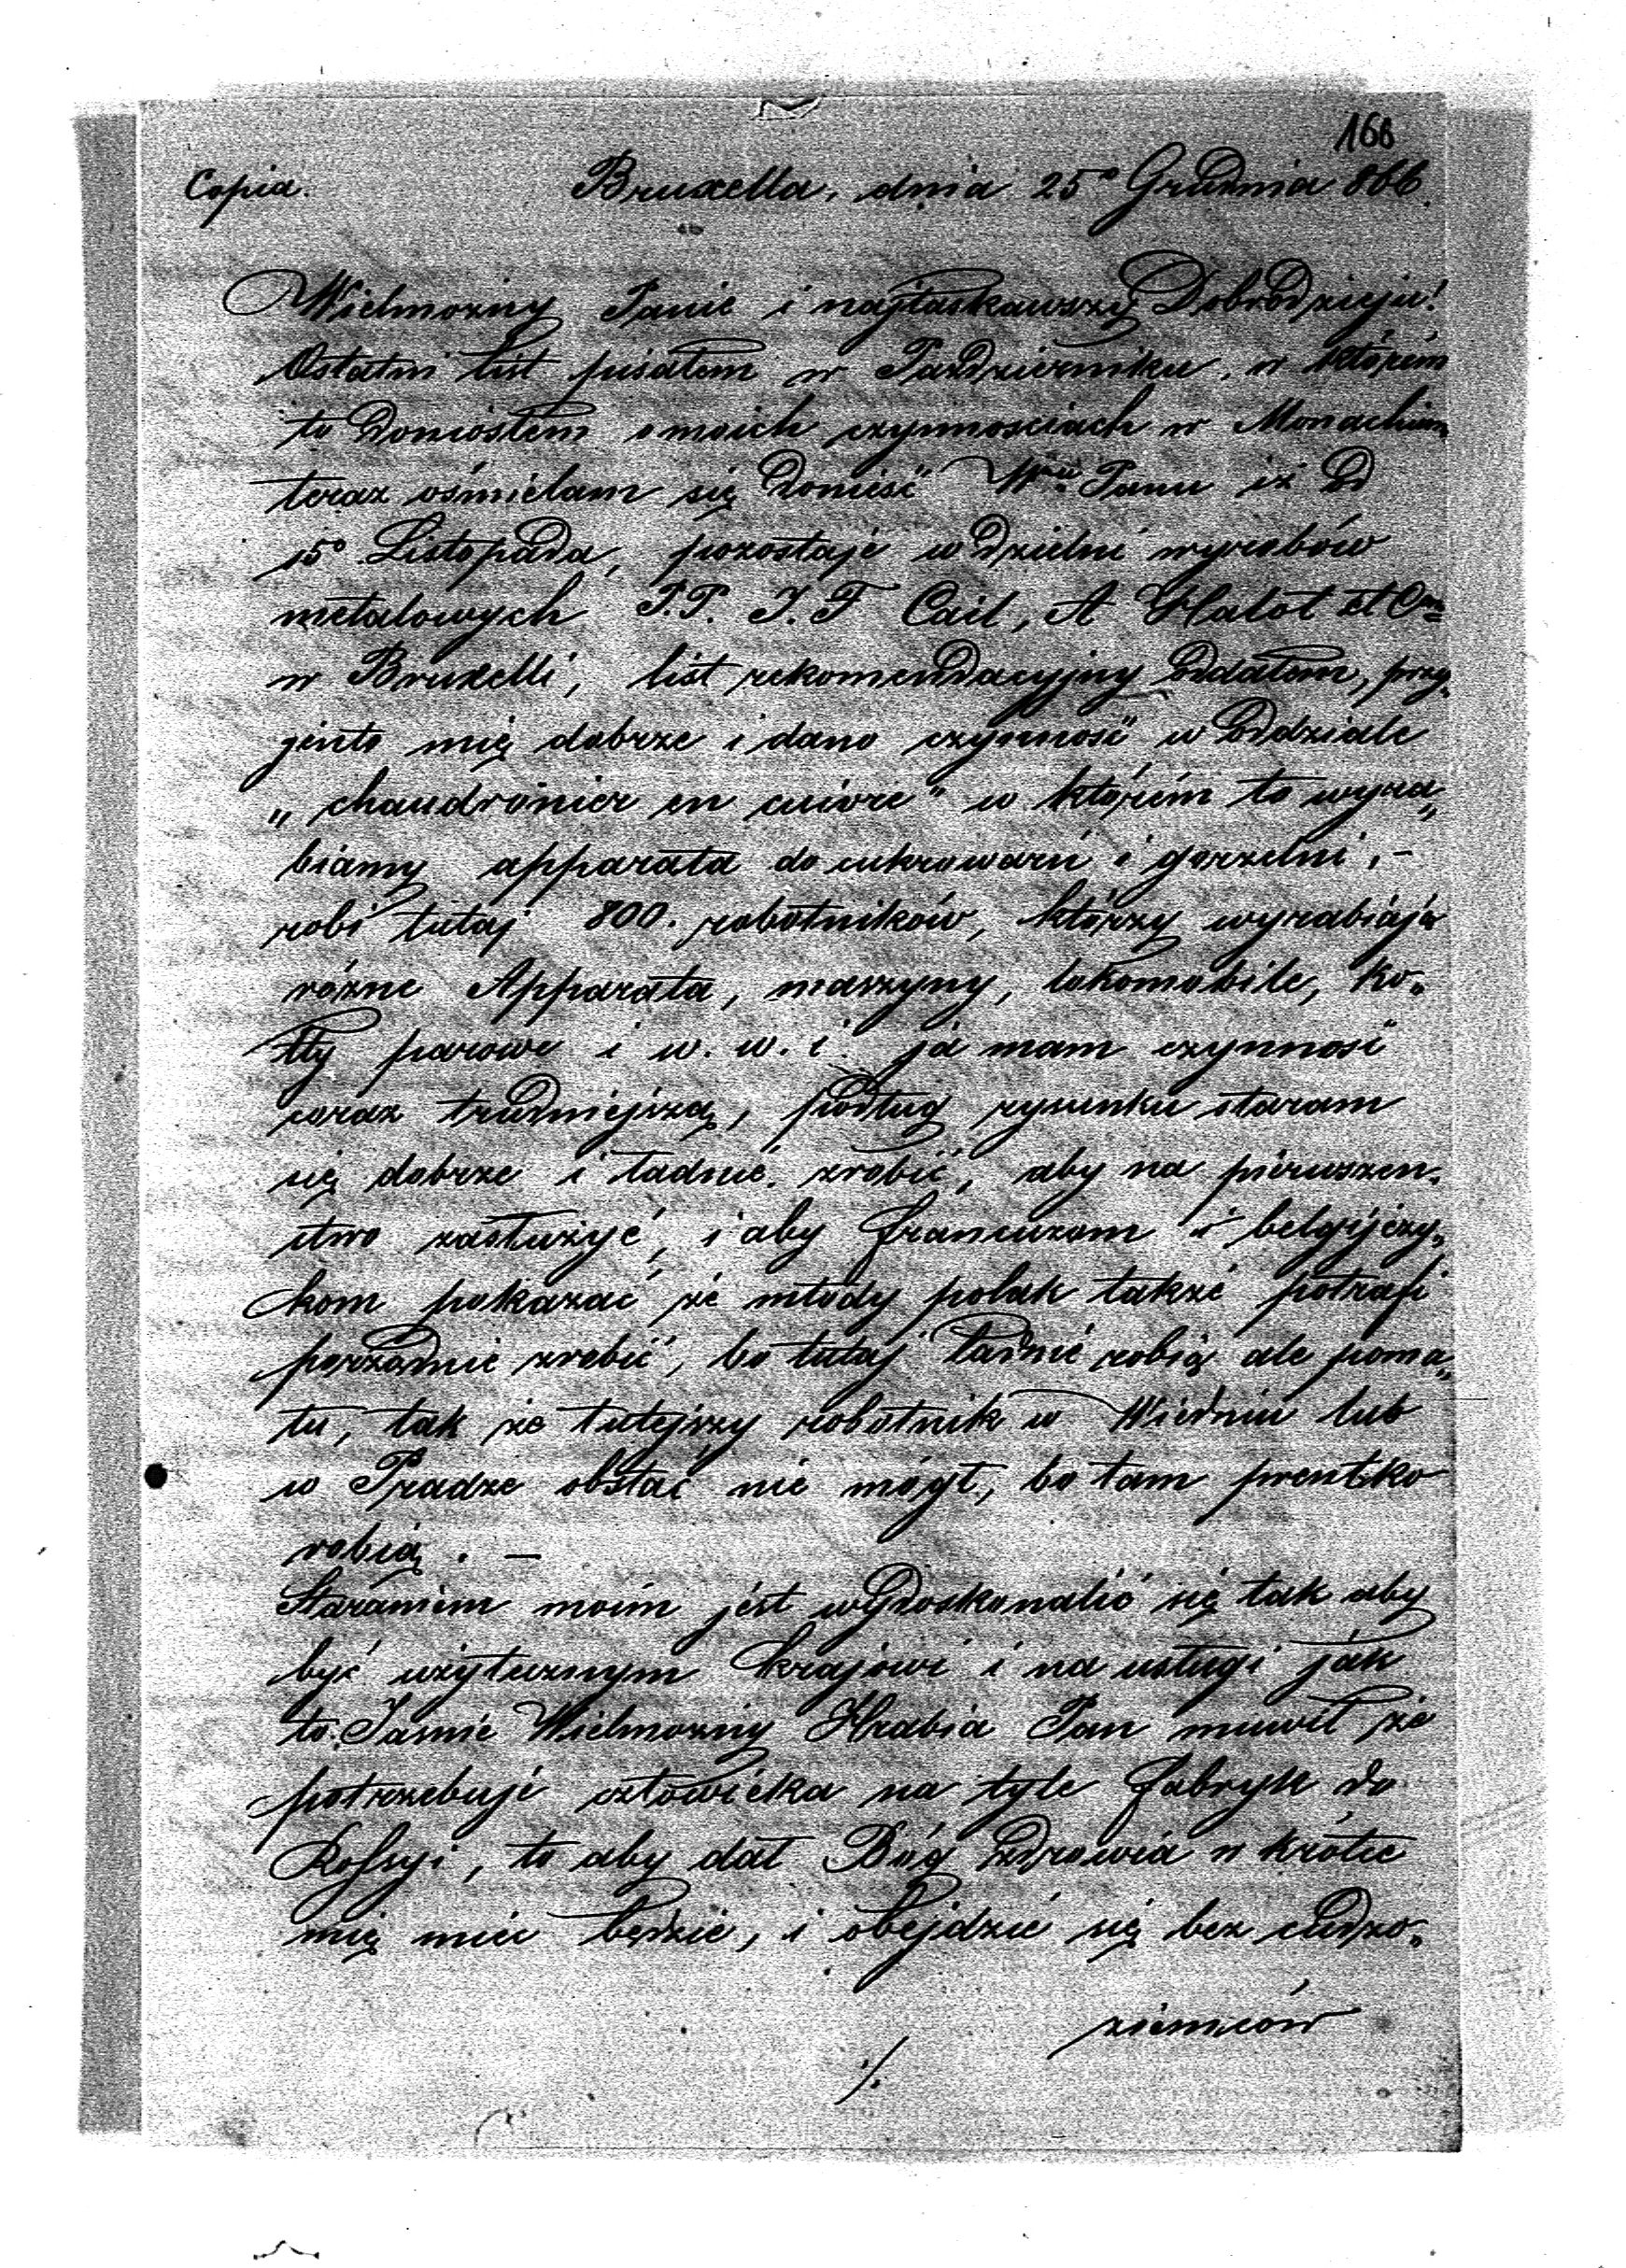 166
Copia. Bruxella, dnia 25º Grudnia 866.
Wielmożny Panie i najłaskawszy Dobrodzieju!
Ostatni list pisałem w Pazdzierniku, w którém
to doniosłem o moich czynnosciach w Monachium
teraz ośmielam się donieść Wmu Panu iż od
15º Listopada, pozostaje w dzielni wyrobów
metalowych P.P. J. F Cail, A Halot et Cie
w Bruxelli, list rekomendacyjny oddałem, przy„
jento mię dobrze i dano czynność w oddziale
„chaudronier en cuivre" w którém to wyra„
biamy apparata do cukrowarń i gorzelni, –
robi tutaj 800. robotników, którzy wyrabiają
różne Apparata, maszyny, lokomobile, ko„
tły parowe i w. w. i ja mam czynność
coraz trudniejszą, podług rysunku staram
się dobrze i ładnie zrobić, aby na pierwszen„
stwo zasłużyć, i aby francuzom i belgijczy„
kom pokazać że młody polak także potrafi
porządnie zrobić, bo tutaj ładnie robią ale poma„
łu, tak że tutejszy robotnik w Wiedniu lub
w Pradze obstać nie mógł, bo tam prentko
robią. —
Staraniem moim jest wydoskonalić się tak aby
być użytecznym krajowi i na usługi jak
to Jasnie Wielmożny Hrabia Pan muwił że
potrzebuje człowieka na tyle fabryk do
Rossyi, to aby dał Bóg zdrowia w krótce
mię mieć będzie, i obejdzie się bez cudzo„
ziemców
./.